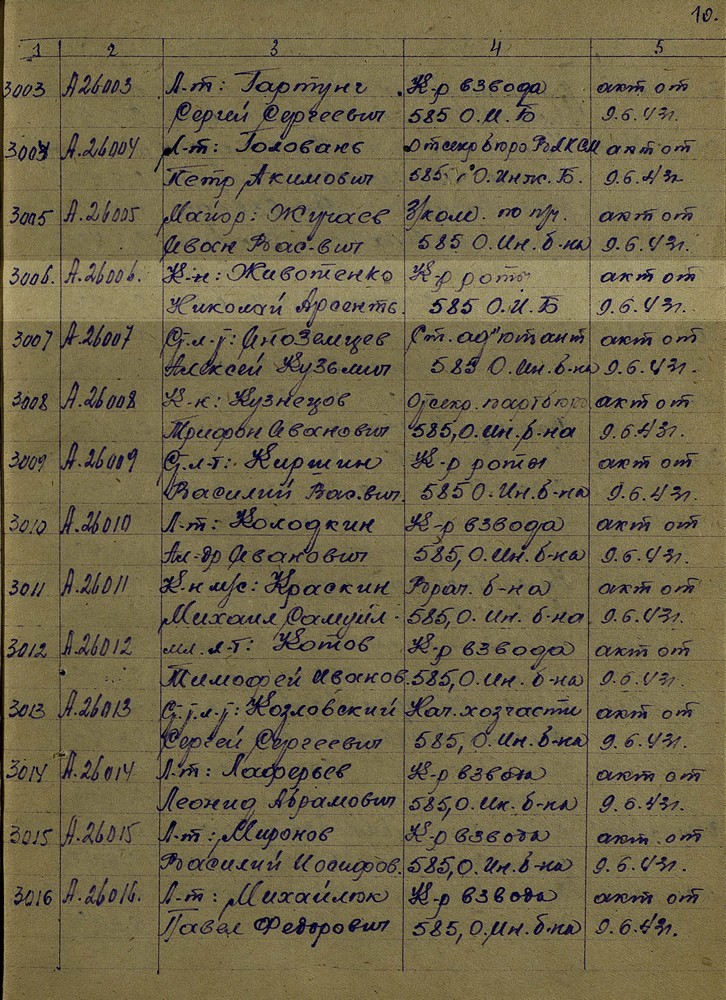 10.
1 2 3 4 5
3003 А26003 Л-т: Гартунг К-р взвода акт от
Сергей Сергеевич 585 О.И.Б 9.6.43г.
3004 А.26004 Л-т: Головань Отсекр бюро ВЛКСМ акт от
Петр Акимович 585 О.Инж.Б. 9.6.43г.
3005 А.26005 Майор: Жугаев З/ком. по акт от
Иван Вас-вич 585 О.Ин.б-на 9.6.43г.
3006. А.26006. К-н: Животенко К-р роты акт от
Николай Арсентв. 585 О.И.Б 9.6.43г.
3007 А.26007 Ст.л-т: Иноземцев Ст. ад"ютант акт от
Алексей Кузьмич 585 О.Ин.б-на 9.6.43г.
3008 А.26008 К-н: Кузнецов Отсекр. партбюро акт от
Трифон Иванович 585, О.Ин.б-на 9.6.43г.
3009 А.26009 Ст.л-т: Киршин К-р роты акт от
Василий Вас.вич. 585 О.Ин.б-на 9.6.43г.
3010 А.26010 Л-т: Колодкин К-р взвода акт от
Ал-др Иванович 585, О.Ин.б-на 9.6.43г.
3011 А.26011 К-н м/с: Краскин Врач. б-на акт от
Михаил Самуйл- 585, О.Ин. б-на 9.6.43г.
3012 А.26012 мл.л-т: Котов К-р взвода акт от
Тимофей Иванов. 585, О.Ин. б-на 9.6.43г.
3013 А.26013 Ст.л-т: Козловский Нач.хозчасти акт от
Сергей Сергеевич 585, О.Ин. б-на 9.6.43г.
3014 А.26014 Л-т: Лаферьев К-р взвода акт от
Леонид Абрамович 585, О.Ин. б-на 9.6.43г.
3015 А.26015 Л-т: Миронов К-р взвода акт от
Василий Иосифов. 585, О.Ин.б-на 9.6.43г.
3016 А.26016. Л-т: Михайлюк К-р взвода акт от
Павел Федорович 585, О.Ин.б-на 9.6.43г.